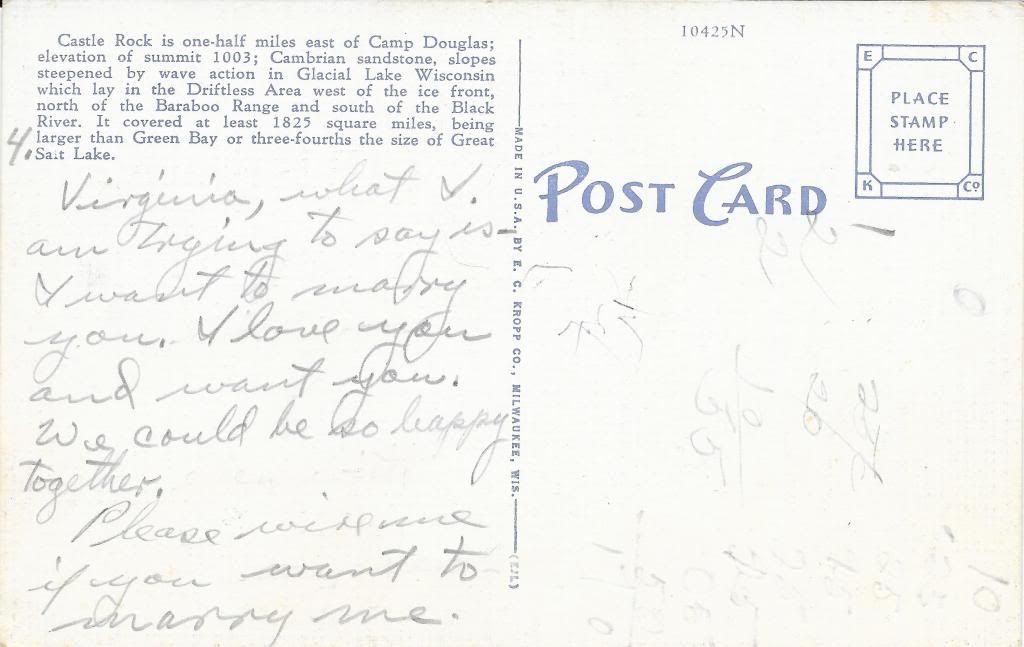 Castle Rock is one-half miles east of Camp Douglas;
elevation of summit 1003; Cambrian sandstone, slopes
steepened by wave action in Glacial Lake Wisconsin
which lay in the Driftless Area west of the ice front,
north of the Baraboo Range and south of the Black
River. It covered at least 1825 square miles, being
larger than Green Bay or three-fourths the size of Great
Salt Lake.
4.
Virginia, what I.
am trying to say is-
I want to marry
you. I love you
and want you.
We could be so happy
together.
Please wire me
if you want to
marry me.
MADE IN U.S.A. BY E. C. KROPP CO., MILWAUKEE, WIS. (EJL)
10425N
POST CARD
E C
PLACE
STAMP
HERE
K Co